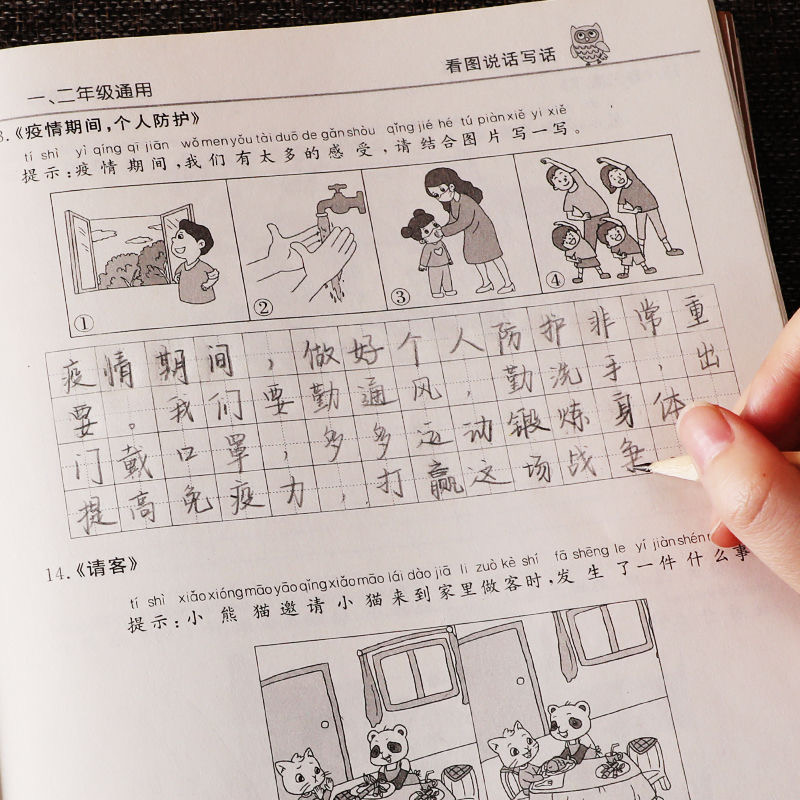 看图说话写话
一、二年级通用
3.《疫情期间,个人防护》
tí shì yì qíng qī jiān wǒ men yǒu tài duō de gǎn shòu qǐng jié hé tú piàn xiě yi xiě
提示:疫情期间,我们有太多的感受,请结合图片写一写。
① ② ③ ④
疫情期间,做好个人防护非常重
要。我们要勤通风,勤洗手,出
门戴口罩,多多运动锻炼身体
提高免疫力,打赢这场战争
14.《请客》
tí shì xiǎo xióng māo yāo qǐng xiǎo māo lái dào jiā li zuò kè shí fā shēng le yí jiàn shén
提示:小熊猫邀请小猫来到家里做客时,发生了一件什么事